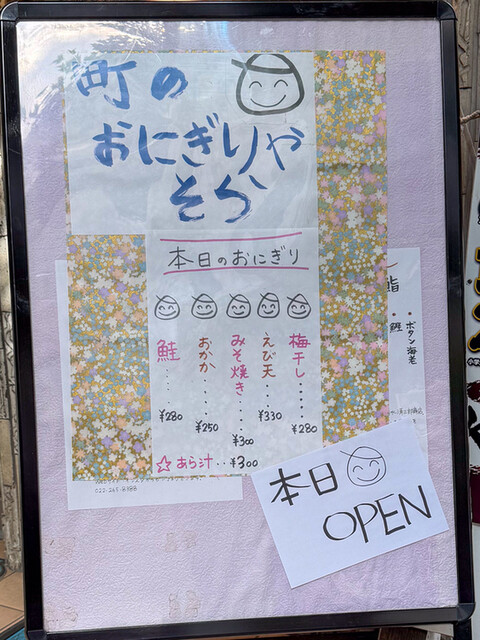 町の
おにぎりや
そら
本日のおにぎり
梅干し・・・・・¥280
えび天・・・¥330
みそ焼き・・・¥300
おかか・・・・¥250
鮭・・・・¥280
☆あら汁・・¥300
鮨
・ボタン海老
・鰹
本日
OPEN